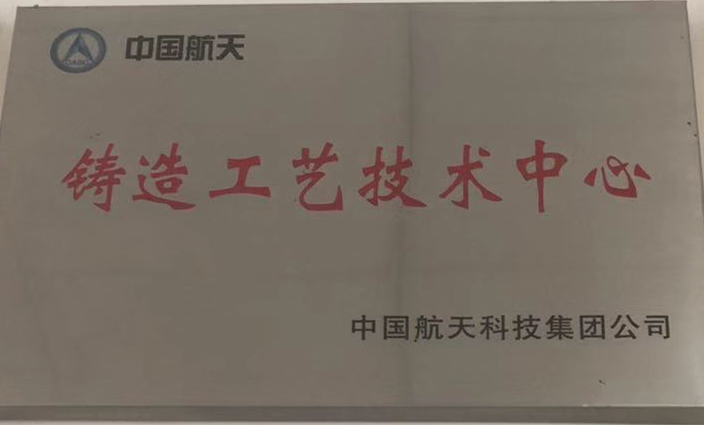 中国航天
铸造工艺技术中心
中国航天科技集团公司